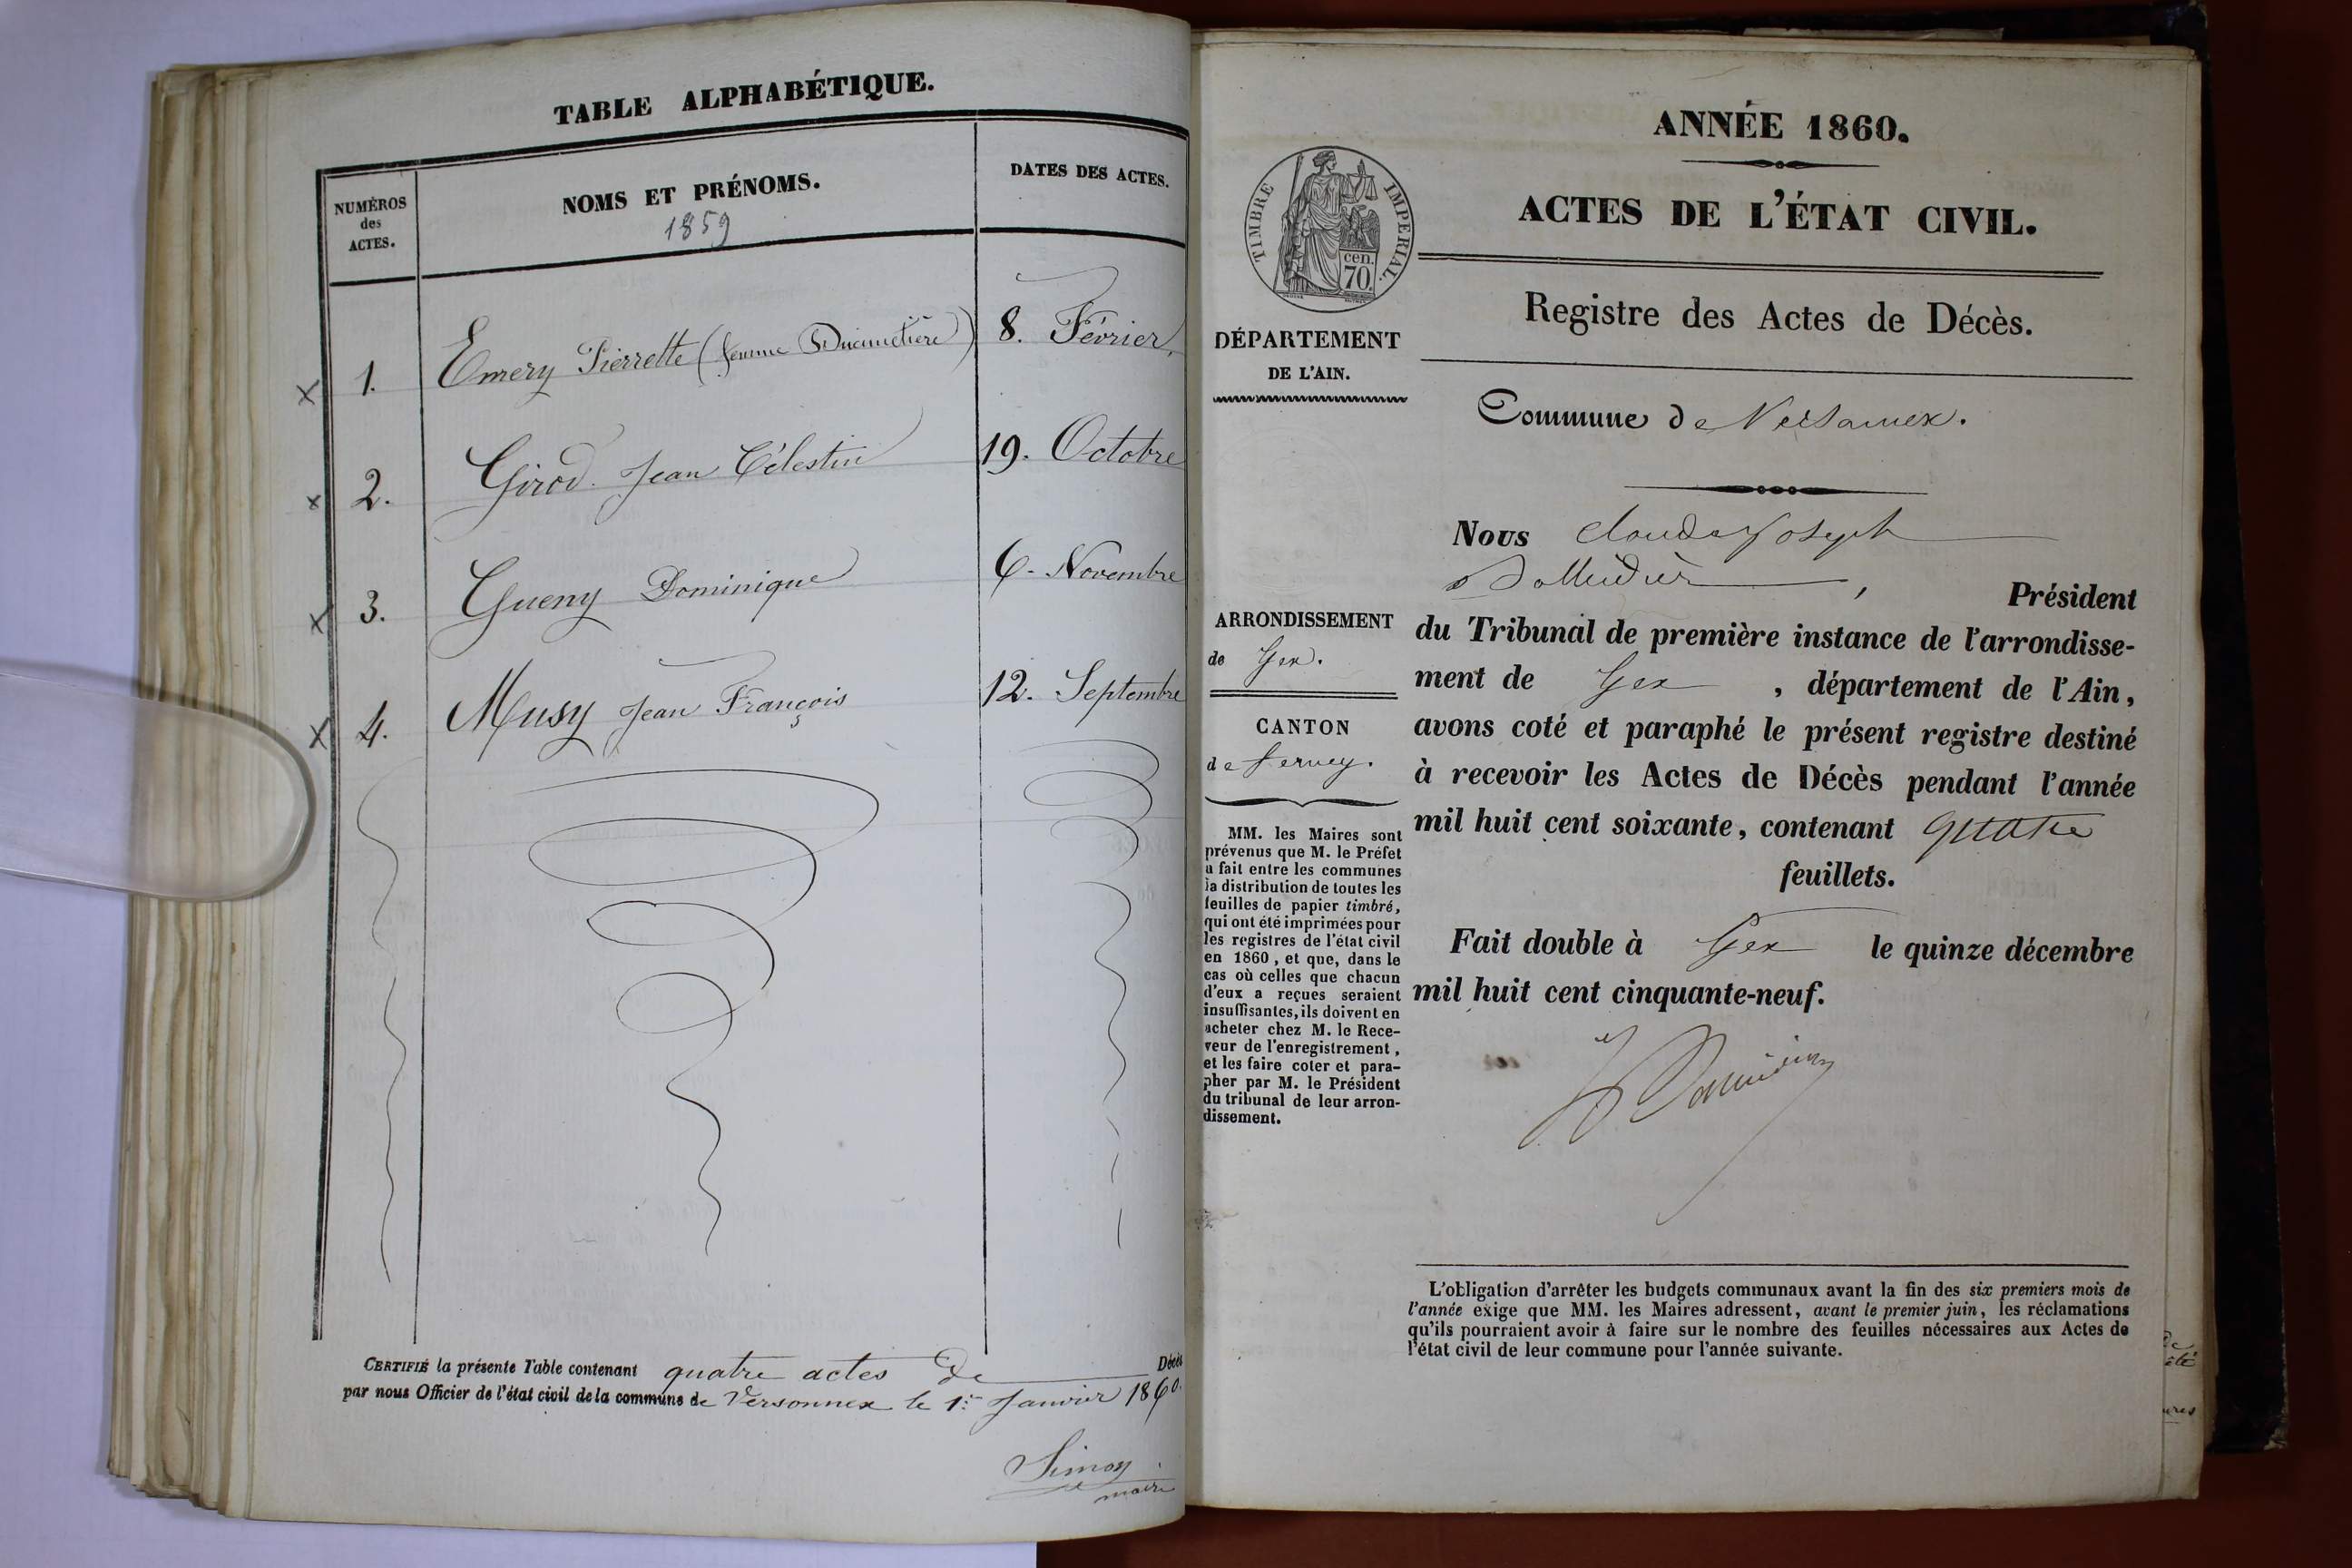 TABLE ALPHABÉTIQUE.
NUMÉROS
des
ACTES.
NOMS ET PRÉNOMS.
1859
DATES DES ACTES.
x 1. Emery Pierrette (femme Ducimetière) 8. Février
x 2. Girod Jean Célestin 19. Octobre
x 3. Gueny Dominique 6. Novembre
x 4. Musy Jean François 12. Septembre
CERTIFIÉ la présente Table contenant quatre actes de Décès
par nous Officier de l'état civil de la commune de Versonnex le 1er Janvier 1860.
Simon
maire
ANNÉE 1860.
ACTES DE L'ÉTAT CIVIL.
Registre des Actes de Décès.
TIMBRE IMPERIAL.
cen.
70.
DÉPARTEMENT
DE L'AIN.
Commune de Versonnex.
ARRONDISSEMENT
de Gex.
CANTON
de Ferney.
MM. les Maires sont
prévenus que M. le Préfet
a fait entre les communes
la distribution de toutes les
feuilles de papier timbré,
qui ont été imprimées pour
les registres de l'état civil
en 1860, et que, dans le
cas où celles que chacun
d'eux a reçues seraient
insuffisantes, ils doivent en
acheter chez M. le Rece-
veur de l'enregistrement,
et les faire coter et para-
pher par M. le Président
du tribunal de leur arron-
dissement.
Nous Claude Joseph
, Président
du Tribunal de première instance de l'arrondisse-
ment de Gex, département de l'Ain,
avons coté et paraphé le présent registre destiné
à recevoir les Actes de Décès pendant l'année
mil huit cent soixante, contenant quatre
feuillets.
Fait double à Gex le quinze décembre
mil huit cent cinquante-neuf.
L'obligation d'arrêter les budgets communaux avant la fin des six premiers mois de
l'année exige que MM. les Maires adressent, avant le premier juin, les réclamations
qu'ils pourraient avoir à faire sur le nombre des feuilles nécessaires aux Actes de
l'état civil de leur commune pour l'année suivante.